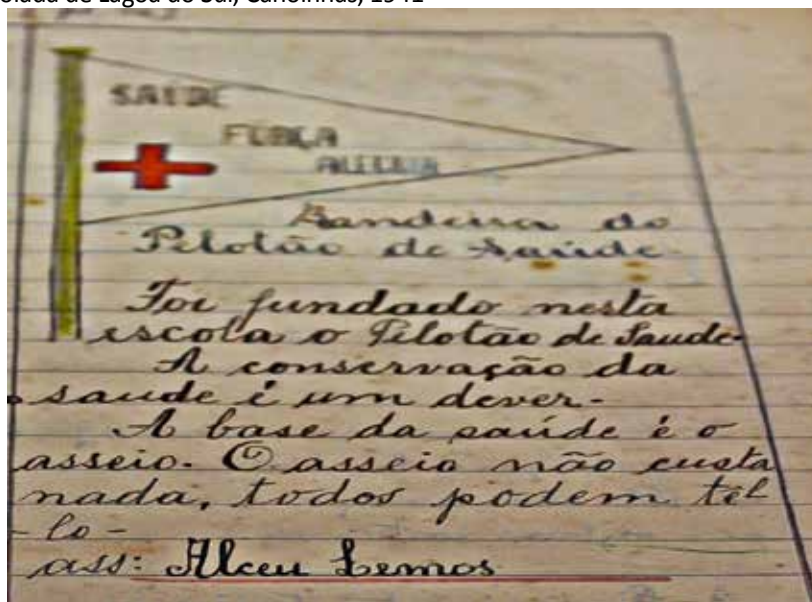 Lagoa do Sul, Canoinhas, 1941
SAÚDE
FORÇA
Bandeira do
Pelotão de saúde.
Foi fundado nesta
escola o Pelotão de Saude.
A conservação da
saude é um dever.
A base da saúde é o
asseio. O asseio não custa
nada, todos podem têl
-lo-
ass: Alceu Lemos